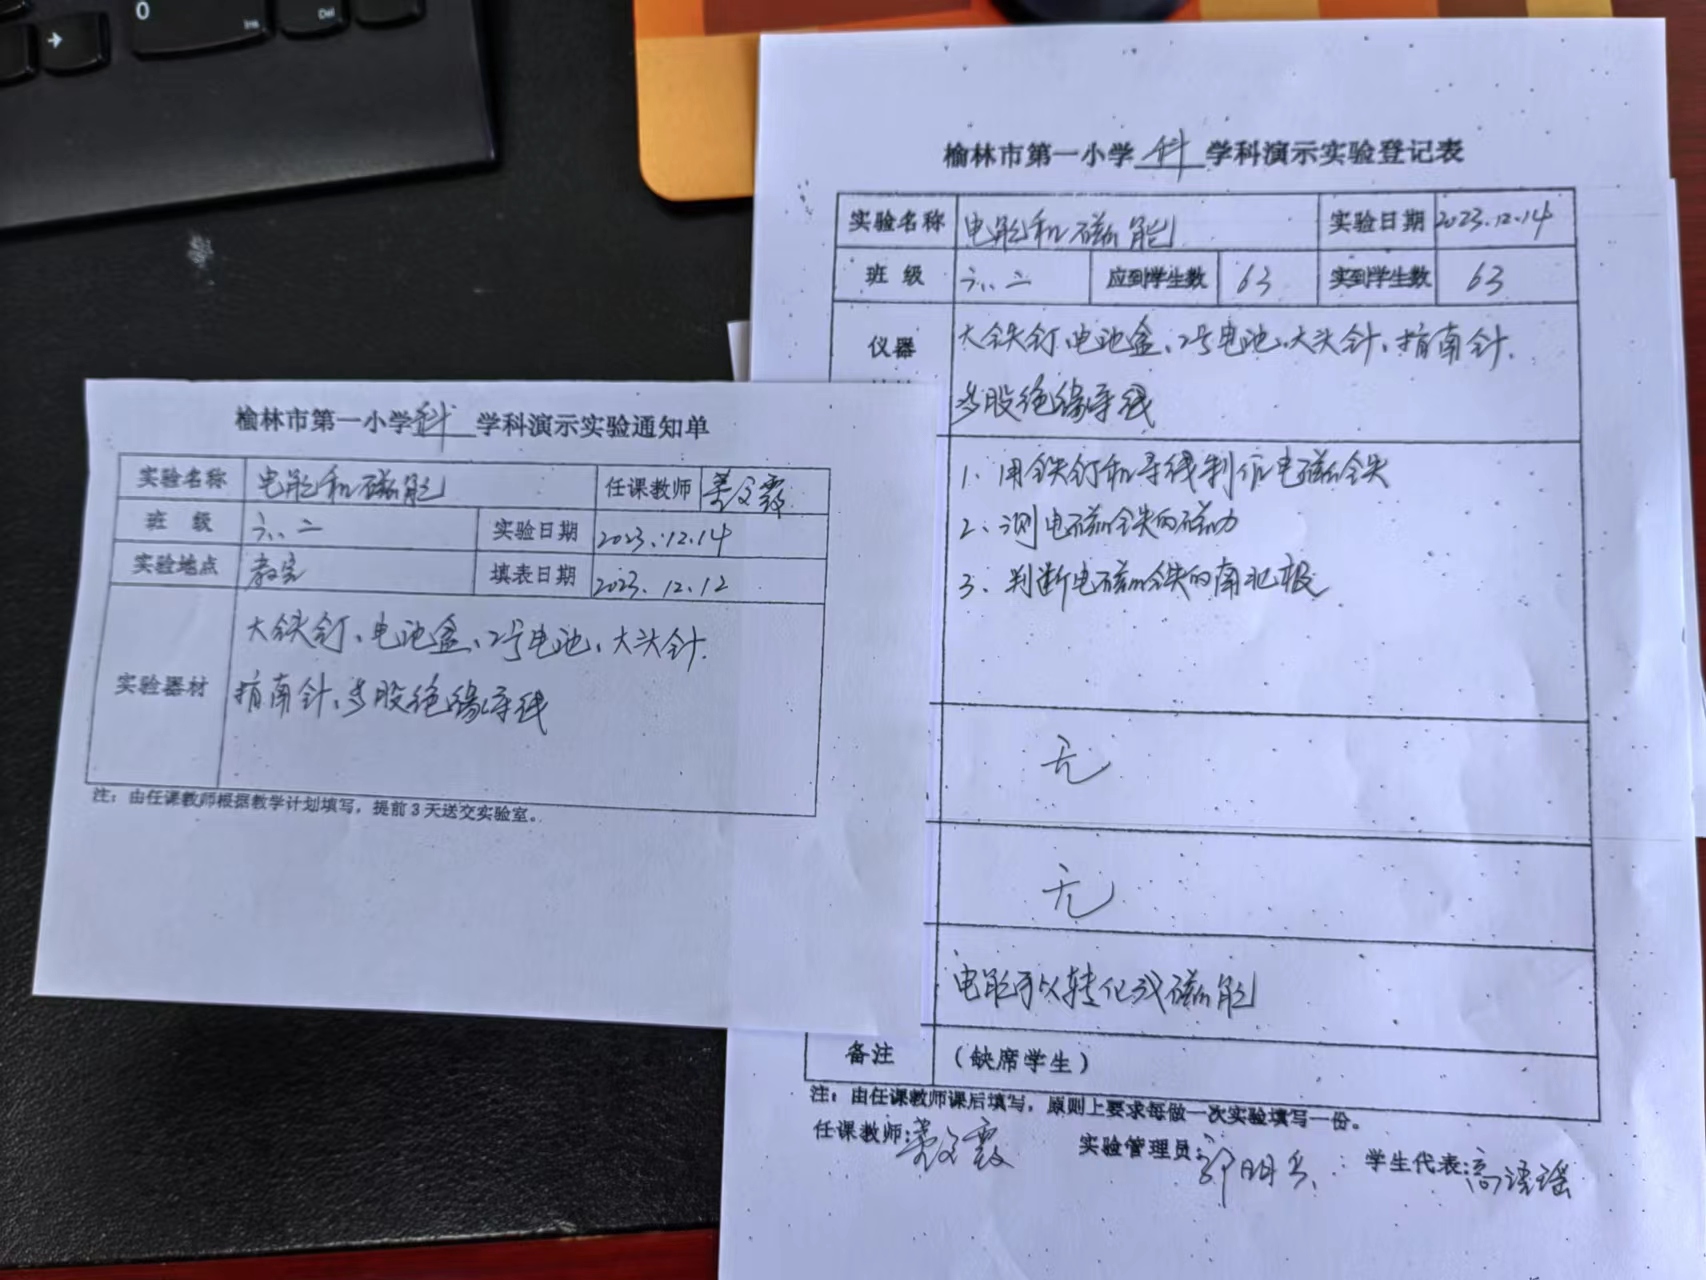 0
Ins
Del
榆林市第一小学科学科演示实验通知单
实验名称 电能和磁能 任课教师
班 级 六、二 实验日期 2023.12.14
实验地点 教室 填表日期 2023.12.12
实验器材
大铁钉、电池盒、2号电池、大头针、
指南针、多股绝缘导线
注：由任课教师根据教学计划填写，提前3天送交实验室。
榆林市第一小学科学科演示实验登记表
实验名称 电能和磁能 实验日期 2023.12.14
班 级 六、二 应到学生数 63 实到学生数 63
仪器
大铁钉、电池盒、2号电池、大头针、指南针、
多股绝缘导线
1、用铁钉和导线制作电磁铁
2、测电磁铁的磁力
3、判断电磁铁的南北极
无
无
电能可以转化成磁能
备注 （缺席学生）
注：由任课教师课后填写，原则上要求每做一次实验填写一份。
任课教师： 实验管理员： 学生代表：高语瑶